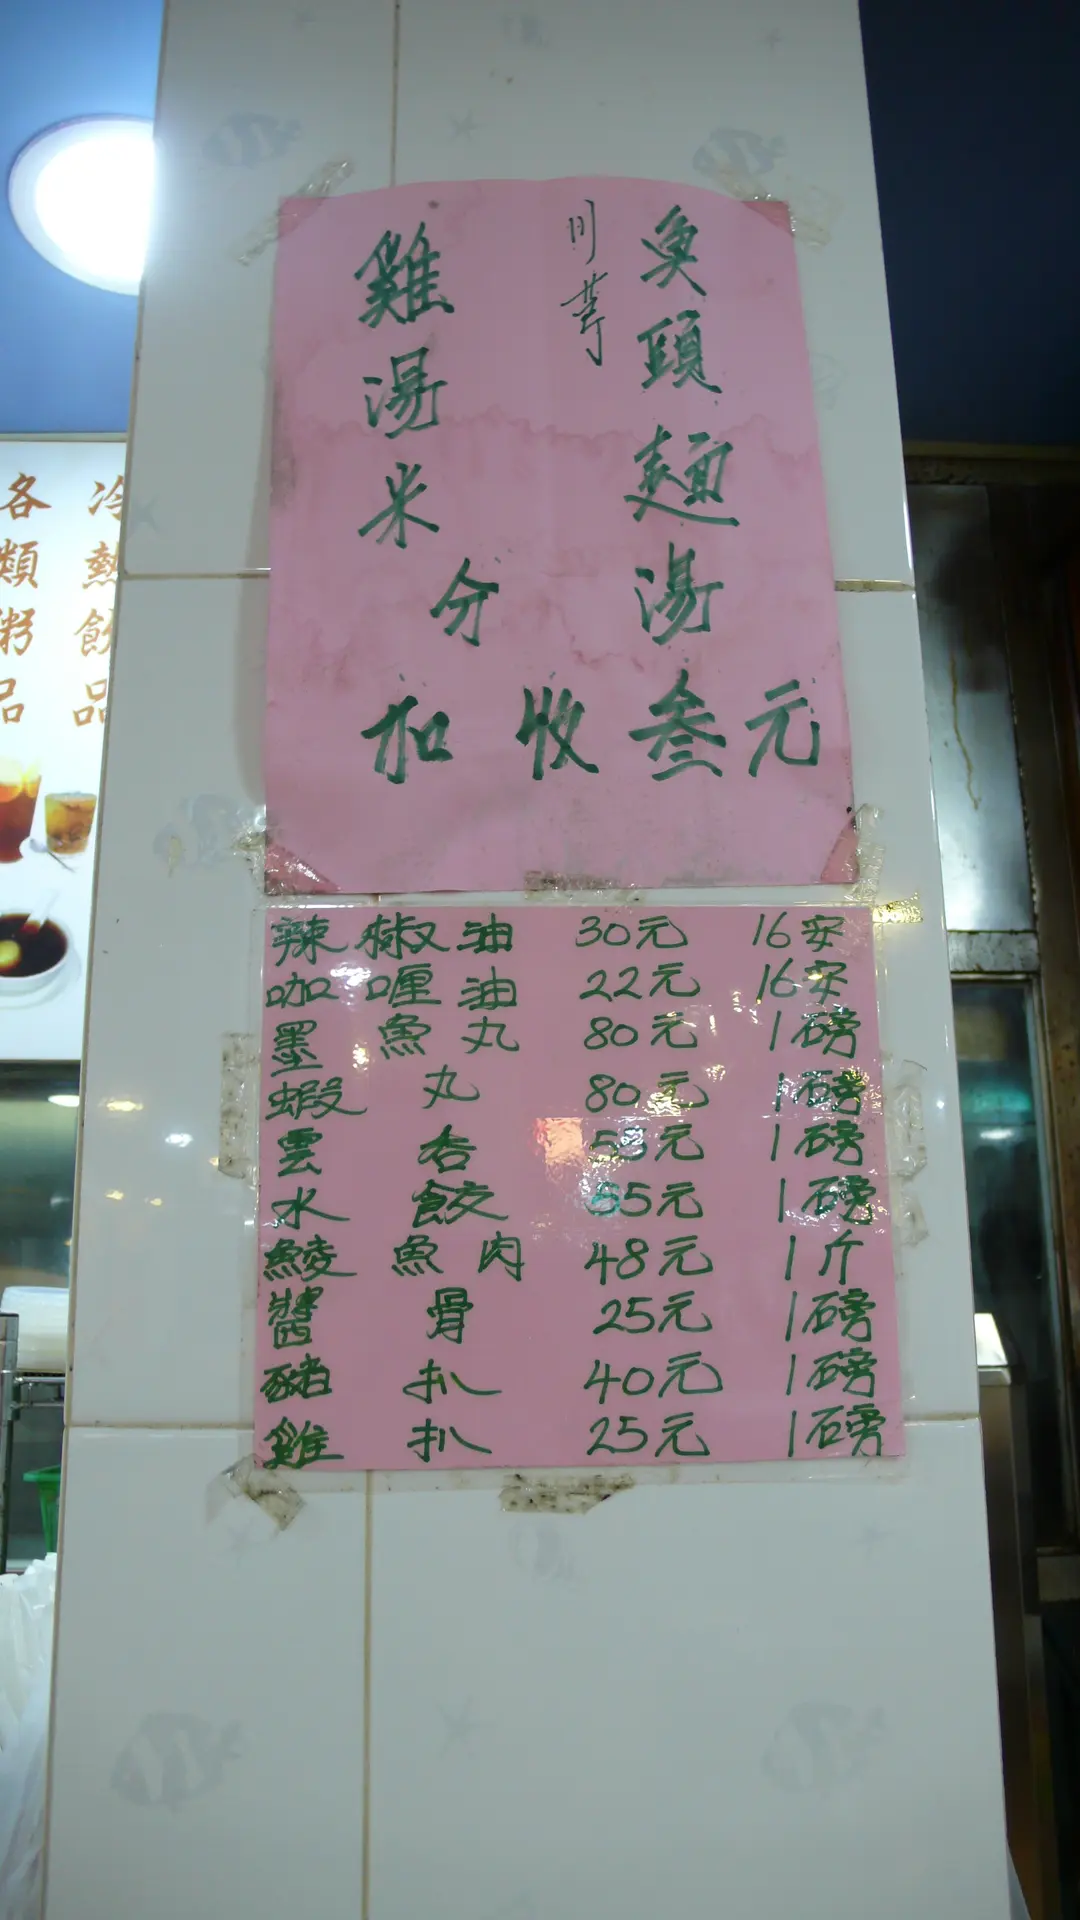 魚頭麵湯
川芎
雞湯米分
加收叁元
辣椒油 30元 16安
咖喱油 22元 16安
墨魚丸 80元 1磅
蝦丸 80元 1磅
雲吞 元 1磅
水餃 元 1磅
鯪魚肉 48元 1斤
醬骨 25元 1磅
豬扒 40元 1磅
雞扒 25元 1磅
冷熱飲品
各類粥品